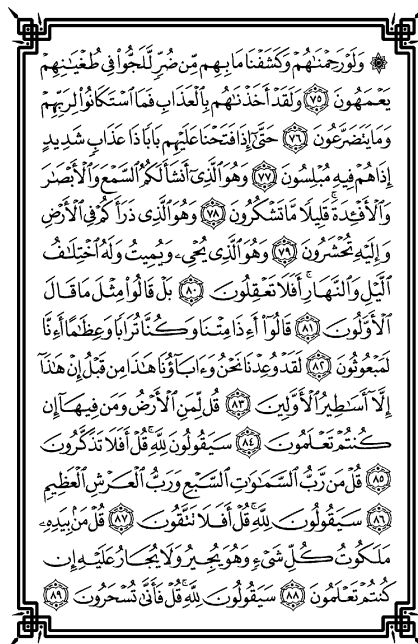 ۞ وَلَوْ رَحِمْنَٰهُمْ وَكَشَفْنَا مَا بِهِم مِّن ضُرٍّ لَّلَجُّوا۟ فِى طُغْيَٰنِهِمْ
يَعْمَهُونَ ﴿٧٥﴾ وَلَقَدْ أَخَذْنَٰهُم بِٱلْعَذَابِ فَمَا ٱسْتَكَانُوا۟ لِرَبِّهِمْ
وَمَا يَتَضَرَّعُونَ ﴿٧٦﴾ حَتَّىٰٓ إِذَا فَتَحْنَا عَلَيْهِم بَابًا ذَا عَذَابٍ شَدِيدٍ
إِذَا هُمْ فِيهِ مُبْلِسُونَ ﴿٧٧﴾ وَهُوَ ٱلَّذِىٓ أَنشَأَ لَكُمُ ٱلسَّمْعَ وَٱلْأَبْصَٰرَ
وَٱلْأَفْـِٔدَةَ ۚ قَلِيلًا مَّا تَشْكُرُونَ ﴿٧٨﴾ وَهُوَ ٱلَّذِى ذَرَأَكُمْ فِى ٱلْأَرْضِ
وَإِلَيْهِ تُحْشَرُونَ ﴿٧٩﴾ وَهُوَ ٱلَّذِى يُحْىِۦ وَيُمِيتُ وَلَهُ ٱخْتِلَٰفُ
ٱلَّيْلِ وَٱلنَّهَارِ ۚ أَفَلَا تَعْقِلُونَ ﴿٨٠﴾ بَلْ قَالُوا۟ مِثْلَ مَا قَالَ
ٱلْأَوَّلُونَ ﴿٨١﴾ قَالُوٓا۟ أَءِذَا مِتْنَا وَكُنَّا تُرَابًا وَعِظَٰمًا أَءِنَّا
لَمَبْعُوثُونَ ﴿٨٢﴾ لَقَدْ وُعِدْنَا نَحْنُ وَءَابَآؤُنَا هَٰذَا مِن قَبْلُ إِنْ هَٰذَآ
إِلَّآ أَسَٰطِيرُ ٱلْأَوَّلِينَ ﴿٨٣﴾ قُل لِّمَنِ ٱلْأَرْضُ وَمَن فِيهَآ إِن
كُنتُمْ تَعْلَمُونَ ﴿٨٤﴾ سَيَقُولُونَ لِلَّهِ ۚ قُلْ أَفَلَا تَذَكَّرُونَ
﴿٨٥﴾ قُلْ مَن رَّبُّ ٱلسَّمَٰوَٰتِ ٱلسَّبْعِ وَرَبُّ ٱلْعَرْشِ ٱلْعَظِيمِ
﴿٨٦﴾ سَيَقُولُونَ لِلَّهِ ۚ قُلْ أَفَلَا تَتَّقُونَ ﴿٨٧﴾ قُلْ مَنۢ بِيَدِهِۦ
مَلَكُوتُ كُلِّ شَىْءٍ وَهُوَ يُجِيرُ وَلَا يُجَارُ عَلَيْهِ إِن
كُنتُمْ تَعْلَمُونَ ﴿٨٨﴾ سَيَقُولُونَ لِلَّهِ ۚ قُلْ فَأَنَّىٰ تُسْحَرُونَ ﴿٨٩﴾